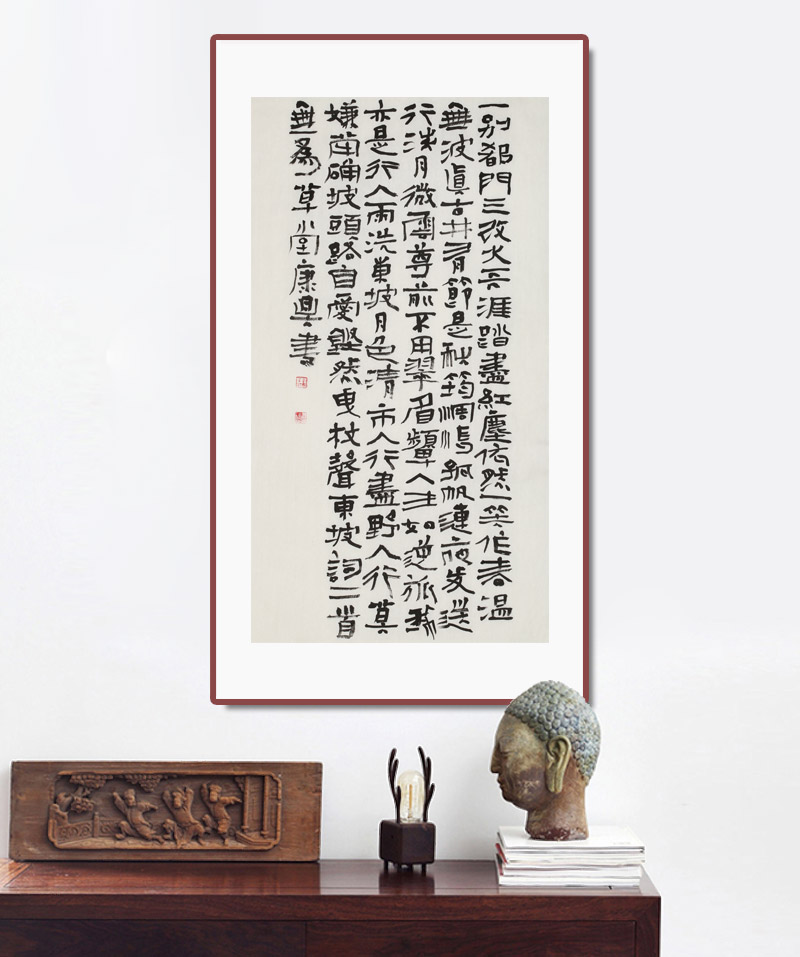 一别都門三改火天涯踏盡紅塵依然一笑作春温
無波真古井有節是秋筠惆悵孤帆連夜發送
行淡月微雲尊前不用翠眉顰人生如逆旅我
亦是行人雨洗東坡月色清市人行盡野人行莫
嫌犖确坡頭路自愛鏗然曳杖聲東坡詞二首
無為一草堂康書